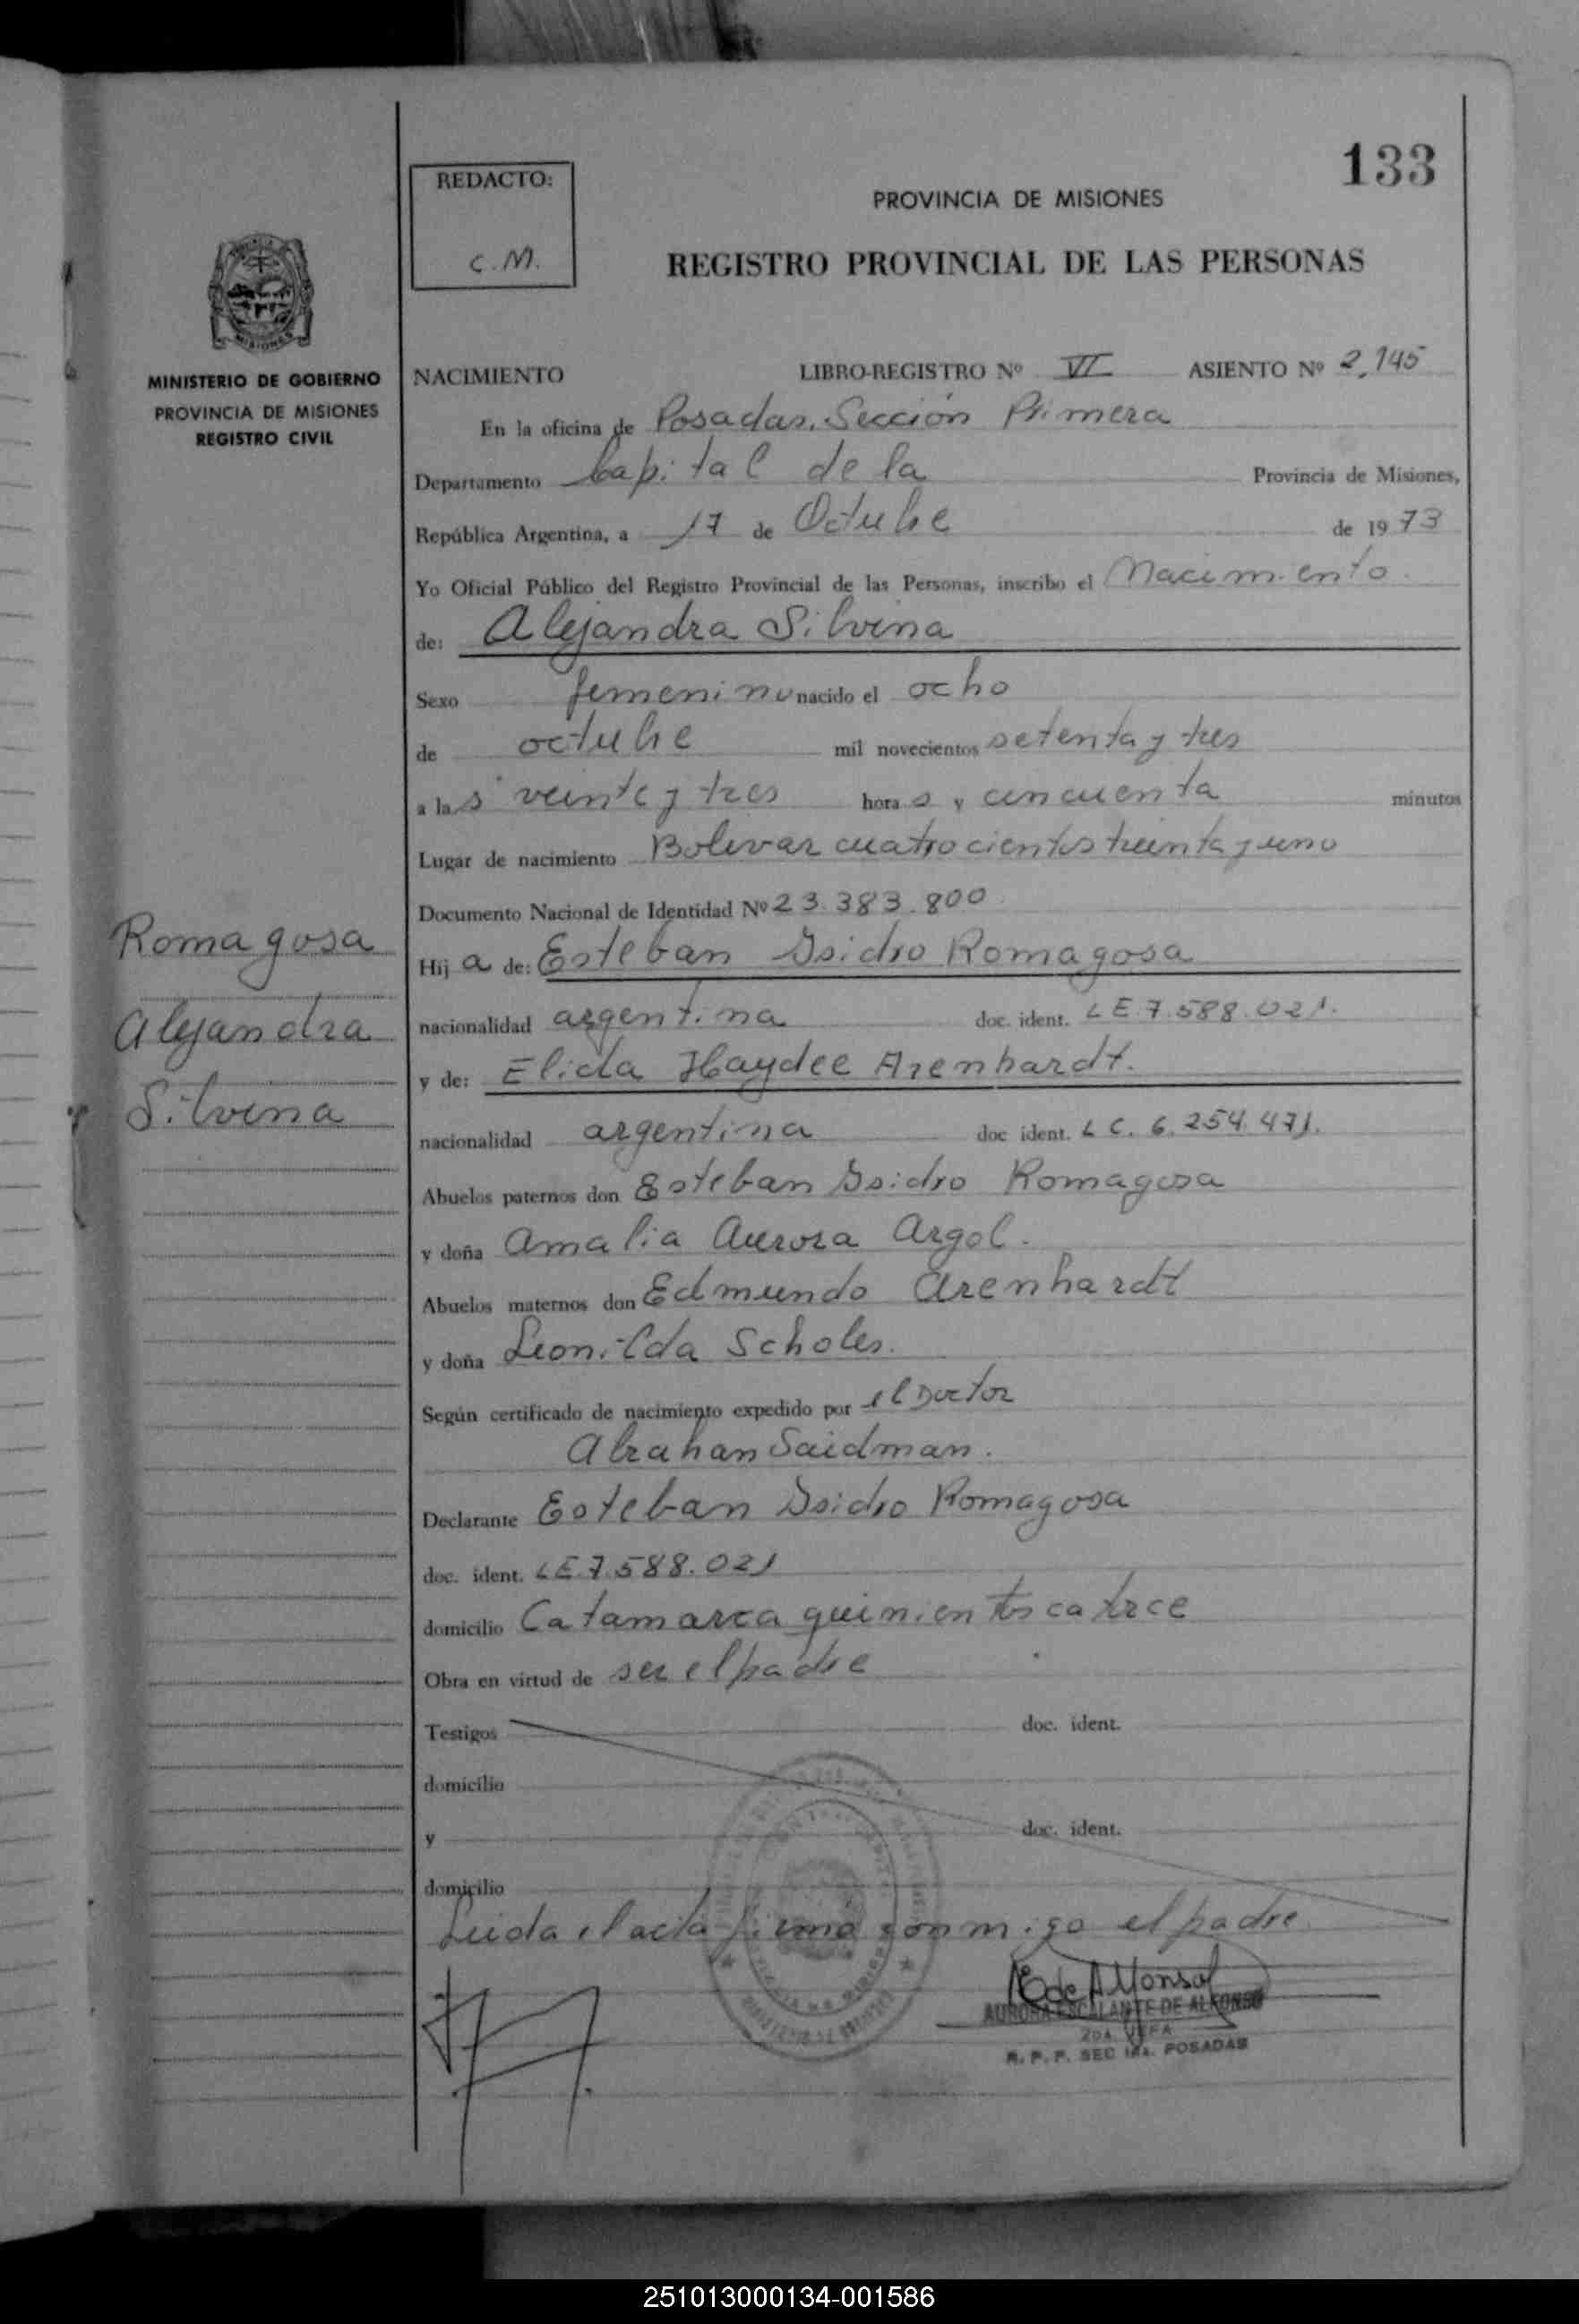 133
REDACTO:
C.M.
PROVINCIA DE MISIONES
REGISTRO PROVINCIAL DE LAS PERSONAS
MINISTERIO DE GOBIERNO
PROVINCIA DE MISIONES
REGISTRO CIVIL
NACIMIENTO LIBRO-REGISTRO Nº VI ASIENTO Nº 2.145
En la oficina de Posadas. Sección Primera
Departamento Capital de la Provincia de Misiones,
República Argentina, a 17 de Octubre de 1973
Yo Oficial Público del Registro Provincial de las Personas, inscribo el Nacimiento.
de: Alejandra Silvina
Sexo femenino nacido el ocho
de octubre mil novecientos setenta y tres
a las veinte y tres horas y cincuenta minutos
Lugar de nacimiento Bolivar cuatrocientos treinta y uno
Documento Nacional de Identidad Nº 23.383.800
Romagosa
Alejandra
Silvina
Hija de: Esteban Isidro Romagosa
nacionalidad argentina doc. ident. LE 7.588.021.
y de: Elida Haydee Arenhardt.
nacionalidad argentina doc ident. LC. 6.254.471.
Abuelos paternos don Esteban Isidro Romagosa
y doña Amalia Aurora Argol.
Abuelos maternos don Edmundo Arenhardt
y doña Leonilda Scholes.
Según certificado de nacimiento expedido por el Doctor
Abrahan Saidman.
Declarante Esteban Isidro Romagosa
doc. ident. LE 7.588.021
domicilio Catamarca quinientos catorce
Obra en virtud de ser el padre
Testigos doc. ident.
domicilio
y doc. ident.
domicilio
Leida el acta firma conmigo el padre.
E de Alfonso
AURORA ESCALANTE DE ALFONSO
2DA. JEFA
R. P. P. SEC 1RA. POSADAS
251013000134-001586